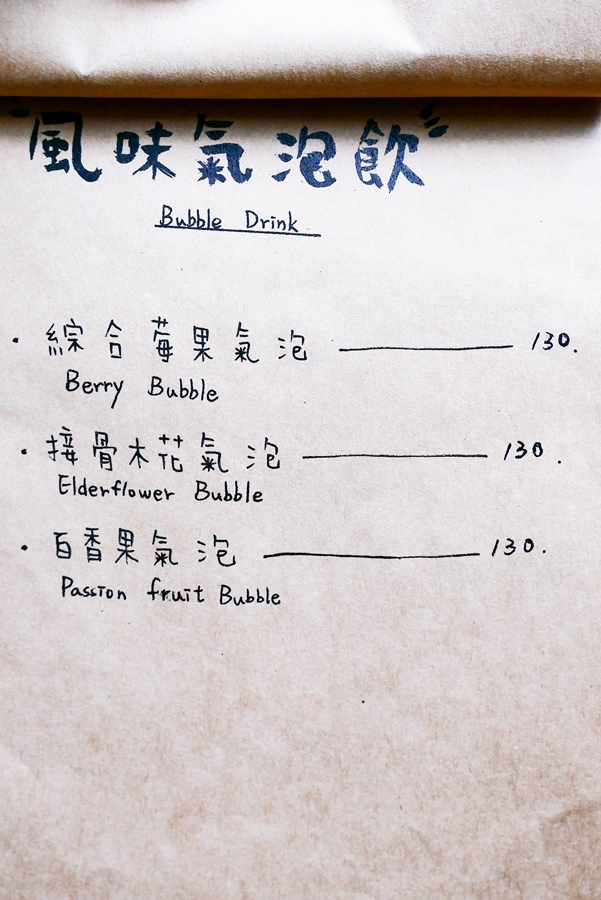 風味氣泡飲
Bubble Drink
· 綜合莓果氣泡 —— 130.
Berry Bubble
· 接骨木花氣泡 —— 130.
Elderflower Bubble
· 百香果氣泡 —— 130.
Passion fruit Bubble